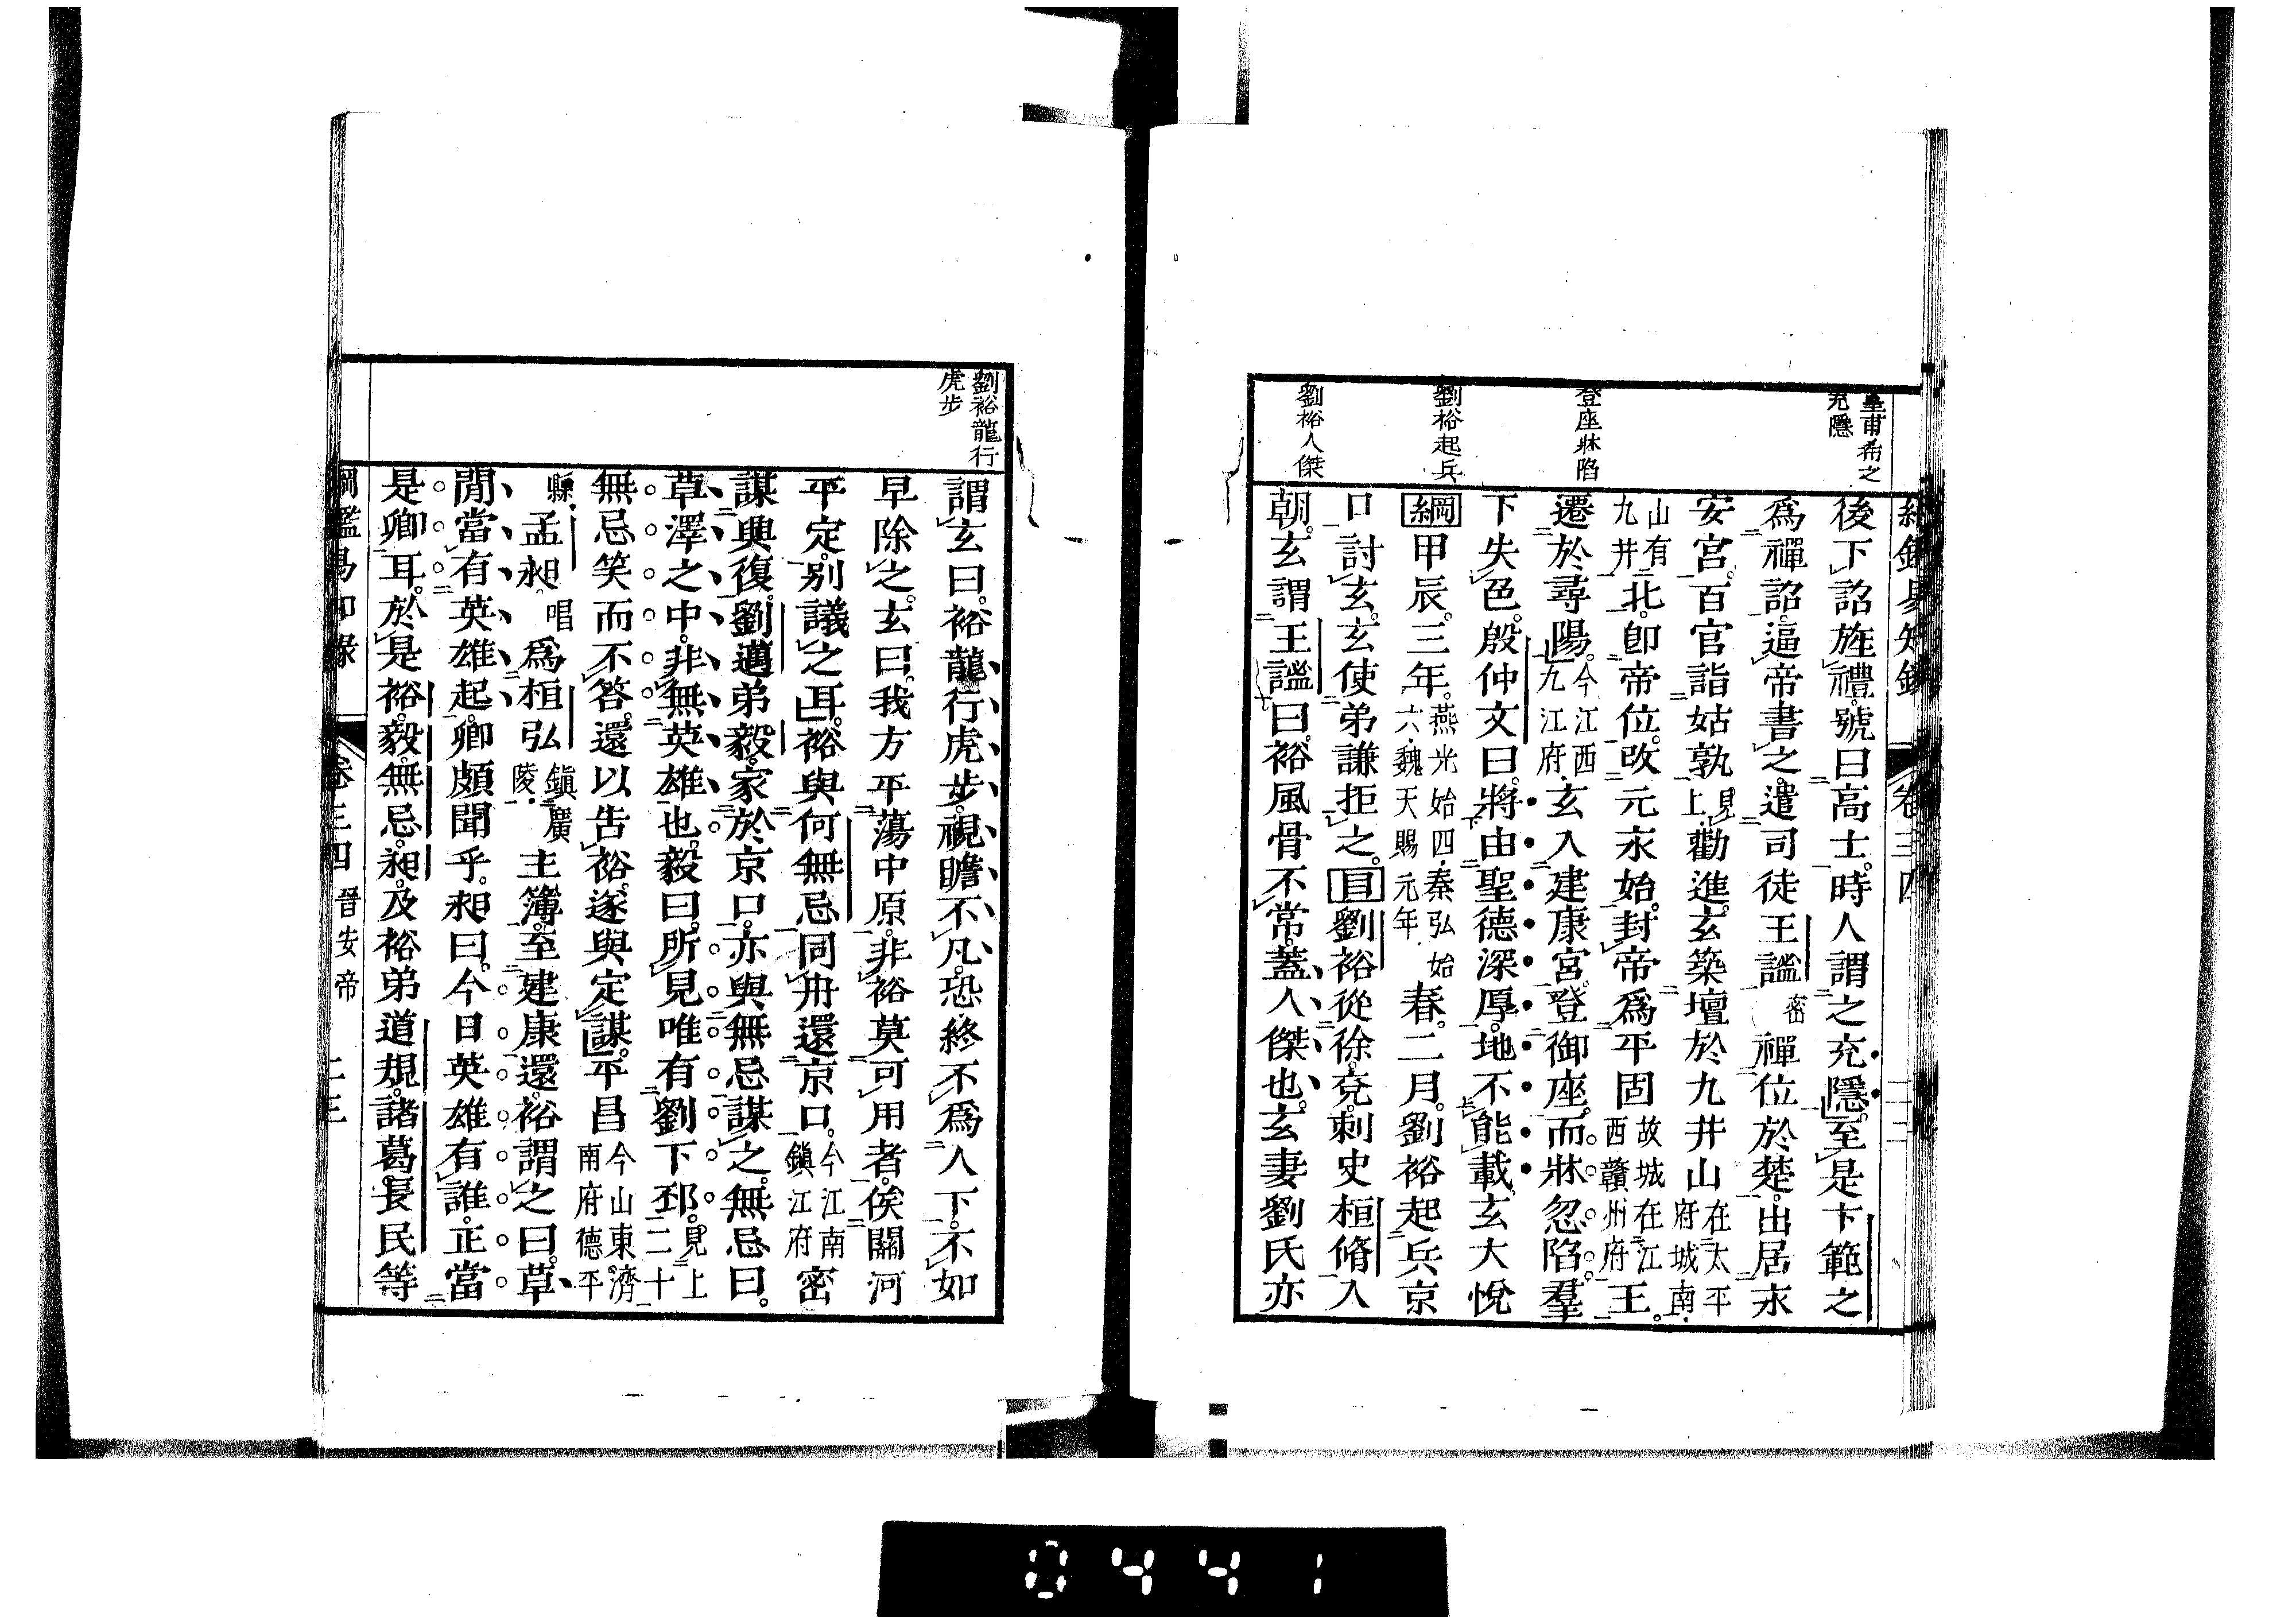 皇甫希之
充隱
登座牀陷
劉裕起兵
劉裕人傑
後下詔旌禮。號曰高士。時人謂之充隱。至是卞範之
爲禪詔。逼帝書之。遣司徒王謐密禪位於楚。出居永
安宮。百官詣姑孰見上勸進。玄築壇於九井山在太平府城南
山有九井北。卽帝位。改元永始。封帝爲平固故城在江西贛州府王。
遷於尋陽。今江西九江府玄入建康宮。登御座。而牀忽陷。羣
下失色。殷仲文曰。將由聖德深厚。地不能載。玄大悅
綱甲辰。三年。燕光始四秦弘始六魏天賜元年春。二月。劉裕起兵京
口討玄。玄使弟謙拒之。目劉裕從徐兗刺史桓脩入
朝。玄謂王謐曰。裕風骨不常。蓋人傑也。玄妻劉氏亦
卷三四
劉裕龍行
虎步
謂玄曰。裕龍行虎步。視瞻不凡。恐終不爲人下。不如
早除之。玄曰。我方平蕩中原。非裕莫可用者。俟關河
平定。別議之耳。裕與何無忌同舟還京口。今江南鎮江府密
謀興復。劉邁弟毅。家於京口。亦與無忌謀之。無忌曰。
草澤之中。非無英雄也。毅曰。所見唯有劉下邳。見上二十
無忌笑而不答。還以告裕。遂與定謀。平昌今山東濟南府德平
縣孟昶唱爲桓弘鎮廣陵主簿。至建康還。裕謂之曰。草
閒當有英雄起。卿頗聞乎。昶曰。今日英雄有誰。正當
是卿耳。於是裕毅無忌昶。及裕弟道規。諸葛長民等
綱鑑易知錄 卷三四 晉安帝
0441